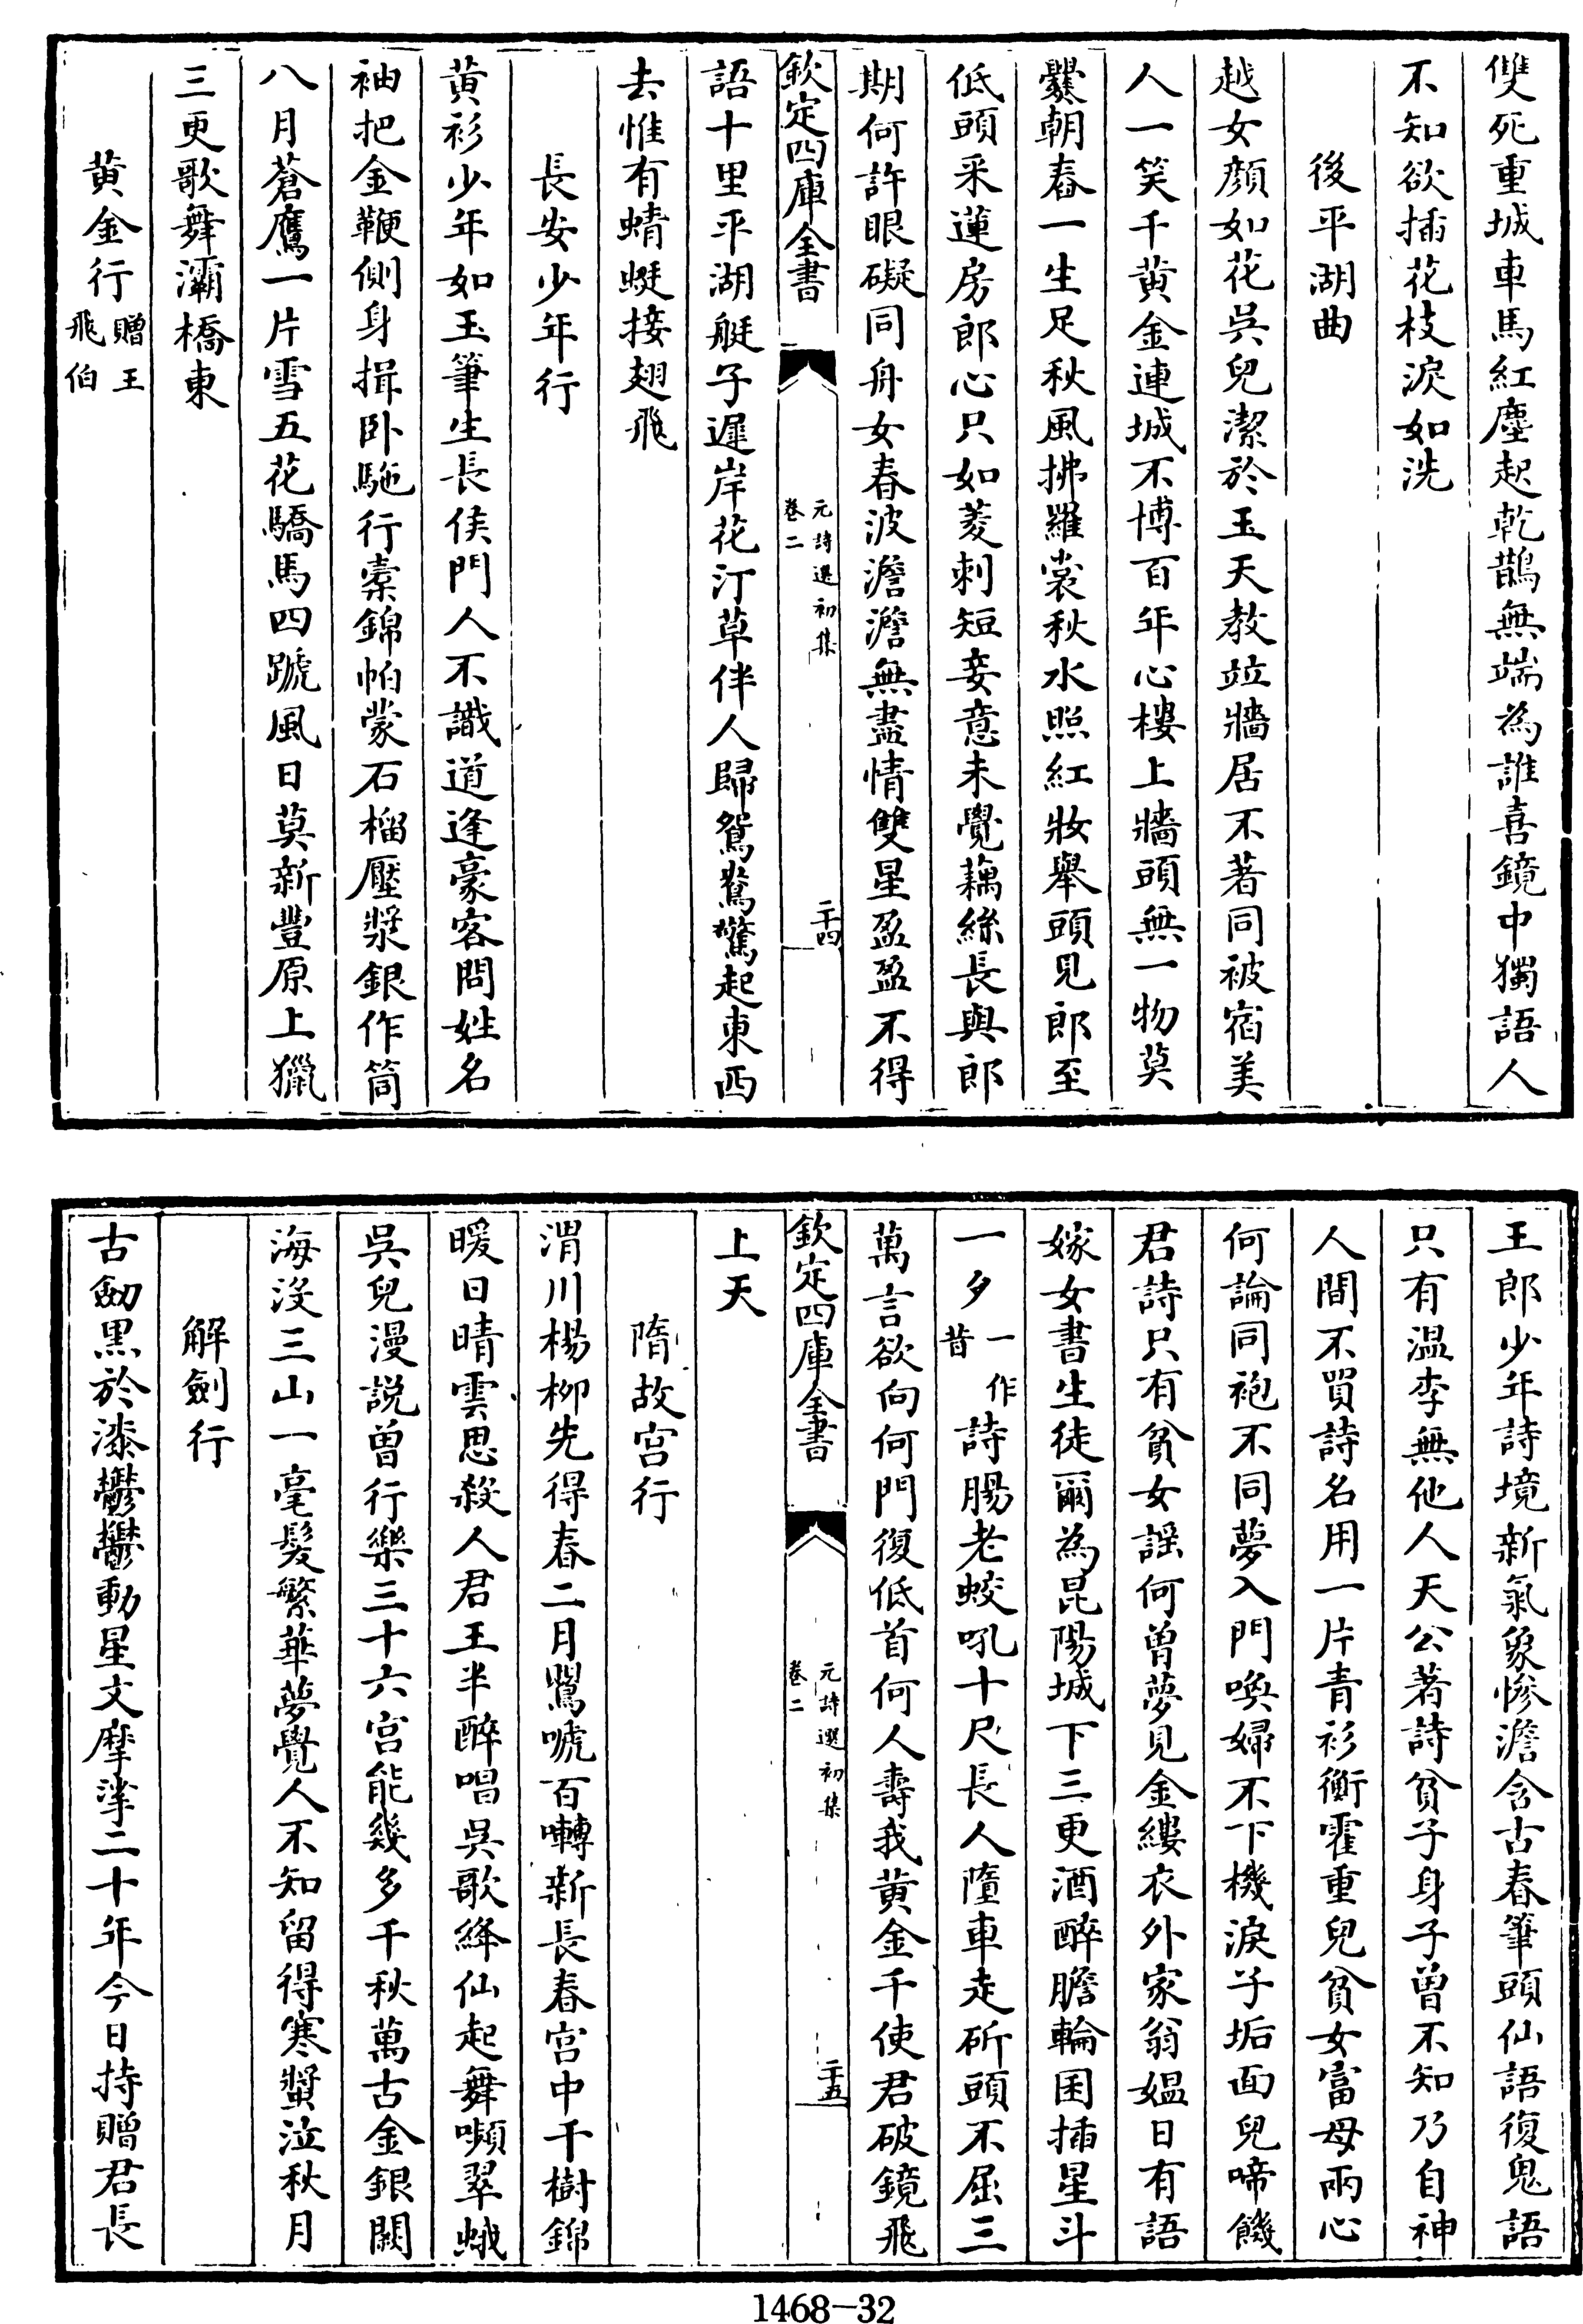 雙死重城車馬紅塵起乾鵲無端為誰喜鏡中獨語人
不知欲插花枝淚如洗
後平湖曲
越女顔如花吳兒潔於玉天教竝牆居不著同被宿美
人一笑千黄金連城不博百年心樓上牆頭無一物莫
爨朝舂一生足秋風拂羅裳秋水照紅妝舉頭見郎至
低頭采蓮房郎心只如菱刺短妾意未覺藕絲長與郎
期何許眼礙同舟女春波澹澹無盡情雙星盈盈不得
欽定四庫全書
元詩選初集
卷二
二十四
語十里平湖艇子遲岸花汀草伴人歸鴛鴦驚起東西
去惟有蜻蜓接翅飛
長安少年行
黄衫少年如玉筆生長侯門人不識道逢豪客問姓名
袖把金鞭側身揖卧駞行橐錦帕蒙石榴壓漿銀作筒
八月蒼鷹一片雪五花驕馬四蹏風日莫新豐原上獵
三更歌舞灞橋東
黄金行贈王飛伯
王郎少年詩境新氣象慘澹含古春筆頭仙語復鬼語
只有温李無他人天公著詩貧子身子曾不知乃自神
人間不買詩名用一片青衫衡霍重兒貧女富母兩心
何論同袍不同夢入門喚婦不下機淚子垢面兒啼饑
君詩只有貧女謡何曾夢見金縷衣外家翁媪日有語
嫁女書生徒爾為昆陽城下三更酒醉膽輪囷插星斗
一夕一作昔詩腸老蛟吼十尺長人墮車走斫頭不屈三
萬言欲向何門復低首何人壽我黄金千使君破鏡飛
欽定四庫全書
元詩選初集
卷二
二十五
上天
隋故宫行
渭川楊柳先得春二月鸎嗁百囀新長春宫中千樹錦
暖日晴雲思殺人君王半醉唱吳歌絳仙起舞嚬翠蛾
吳兒漫説曾行樂三十六宫能幾多千秋萬古金銀闕
海没三山一毫髮繁華夢覺人不知留得寒螿泣秋月
解劍行
古劒黒於漆鬱鬱動星文摩挲二十年今日持贈君長
1468-32